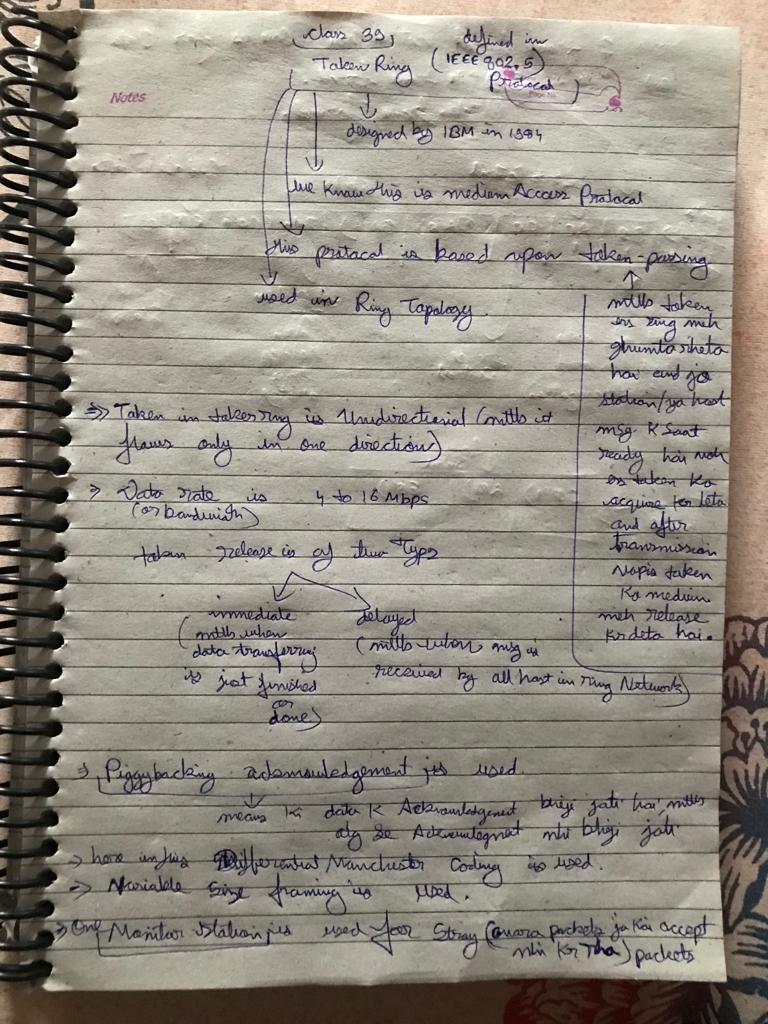 class 39
defined in
Taken Ring (IEEE 802.5)
Protocal)
Notes
Page No.
designed by IBM in 1984
we know this is medium Access Protocal
this protocal is based upon taken-passing
used in Ring Tapology
mtlb taken
es ring meh
ghumta rheta
hai and jo
station/ya host
msg K Saat
ready hai woh
es taken Ko
acquire kr leta
and after
transmission
vapis taken
Ko medium
meh release
Krdeta hai.
=> Taken in taken ring is Unidirectional (mtlb it
flows only in one direction)
=> Data rate is 4 to 16 Mbps
(or bandwidth)
taken release is of two Type
immediate
(mtlb when
data transferring
is just finished
or
done)
delayed
(mtlb when msg is
received by all host in ring Network)
=> Piggybacking acknowledgement is used.
means Ki data K Acknowledgement bhiji jati hai mtlb
alg se Acknowledgment nhi bhiji jati
-> here in this Differential Manchester Coding is used.
-> Variable Size framing is used.
-> One Monitor Station is used for Stray (awara packets jo koi accept
nhi Kr rha) packets